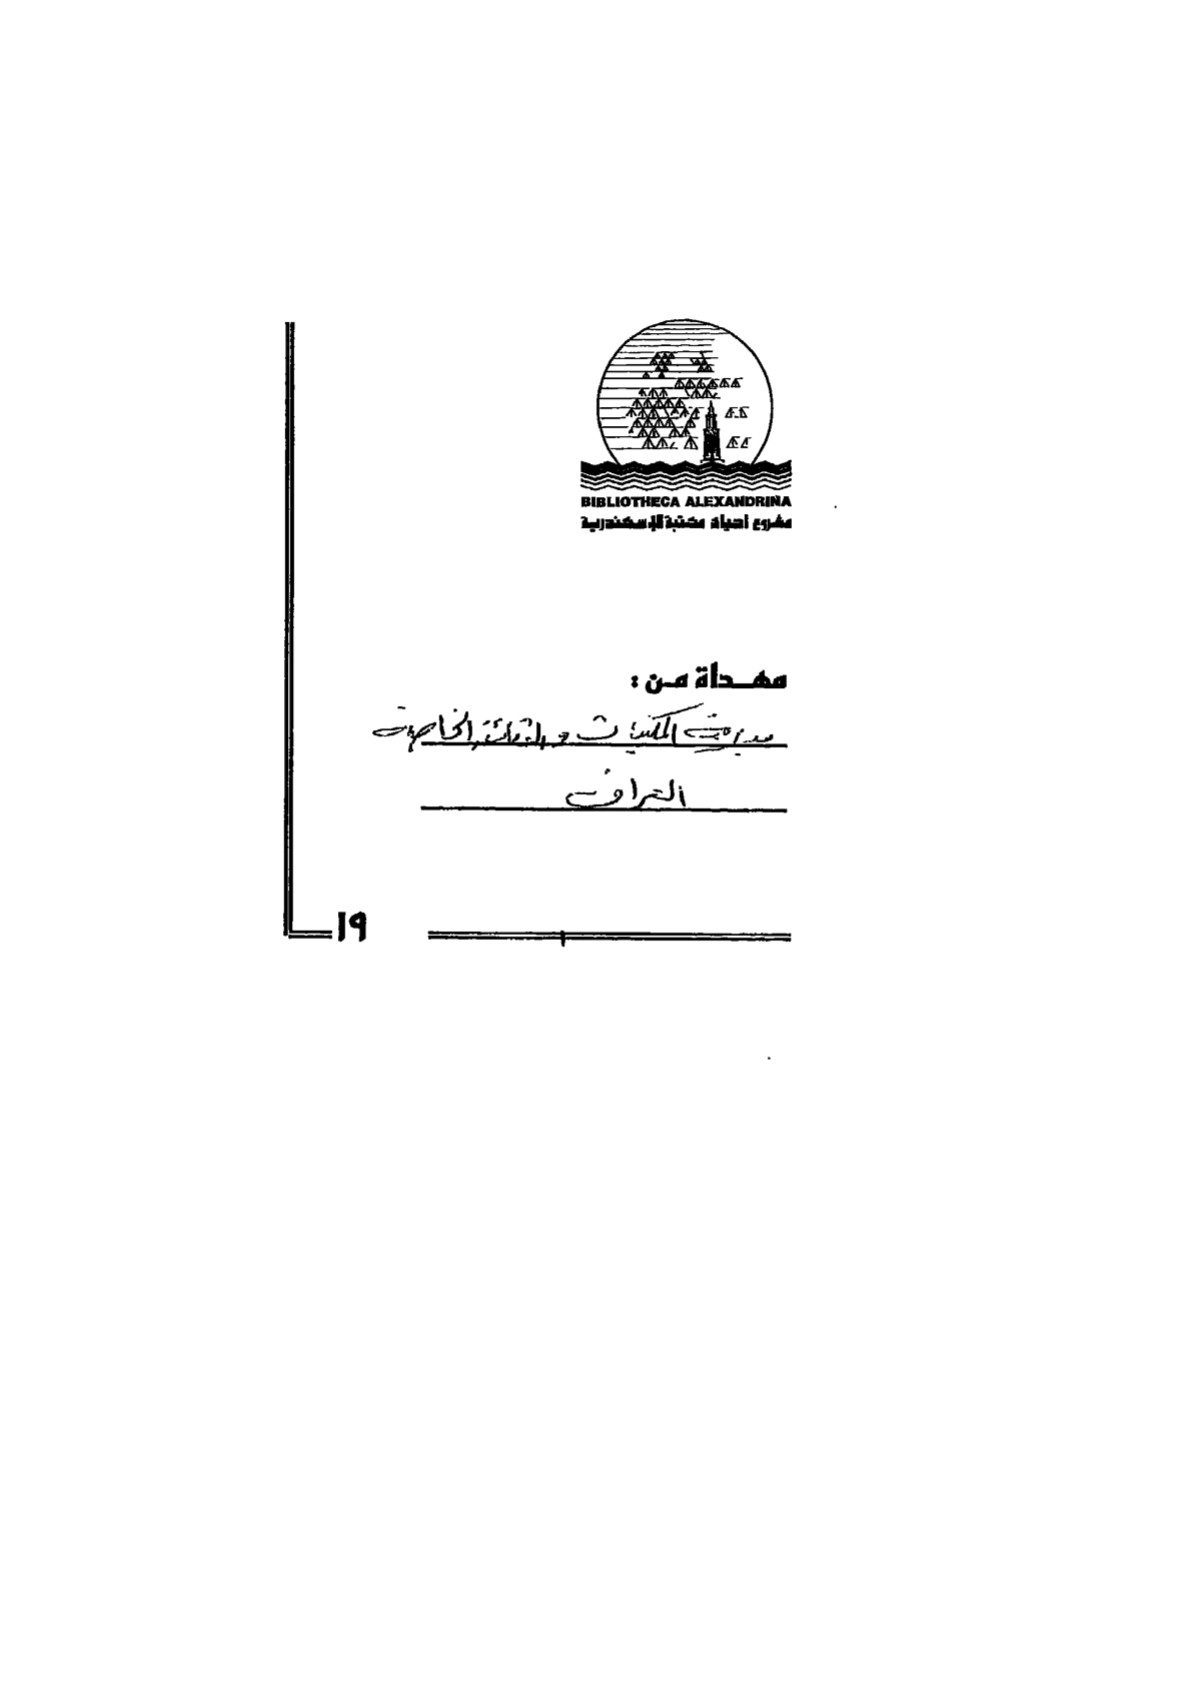 BIBLIOTHECA ALEXANDRINA
مشروع احياء مكتبة الإسكندرية
مهداة من :
مديرية المكتبات و الخاصة
العراق
١٩